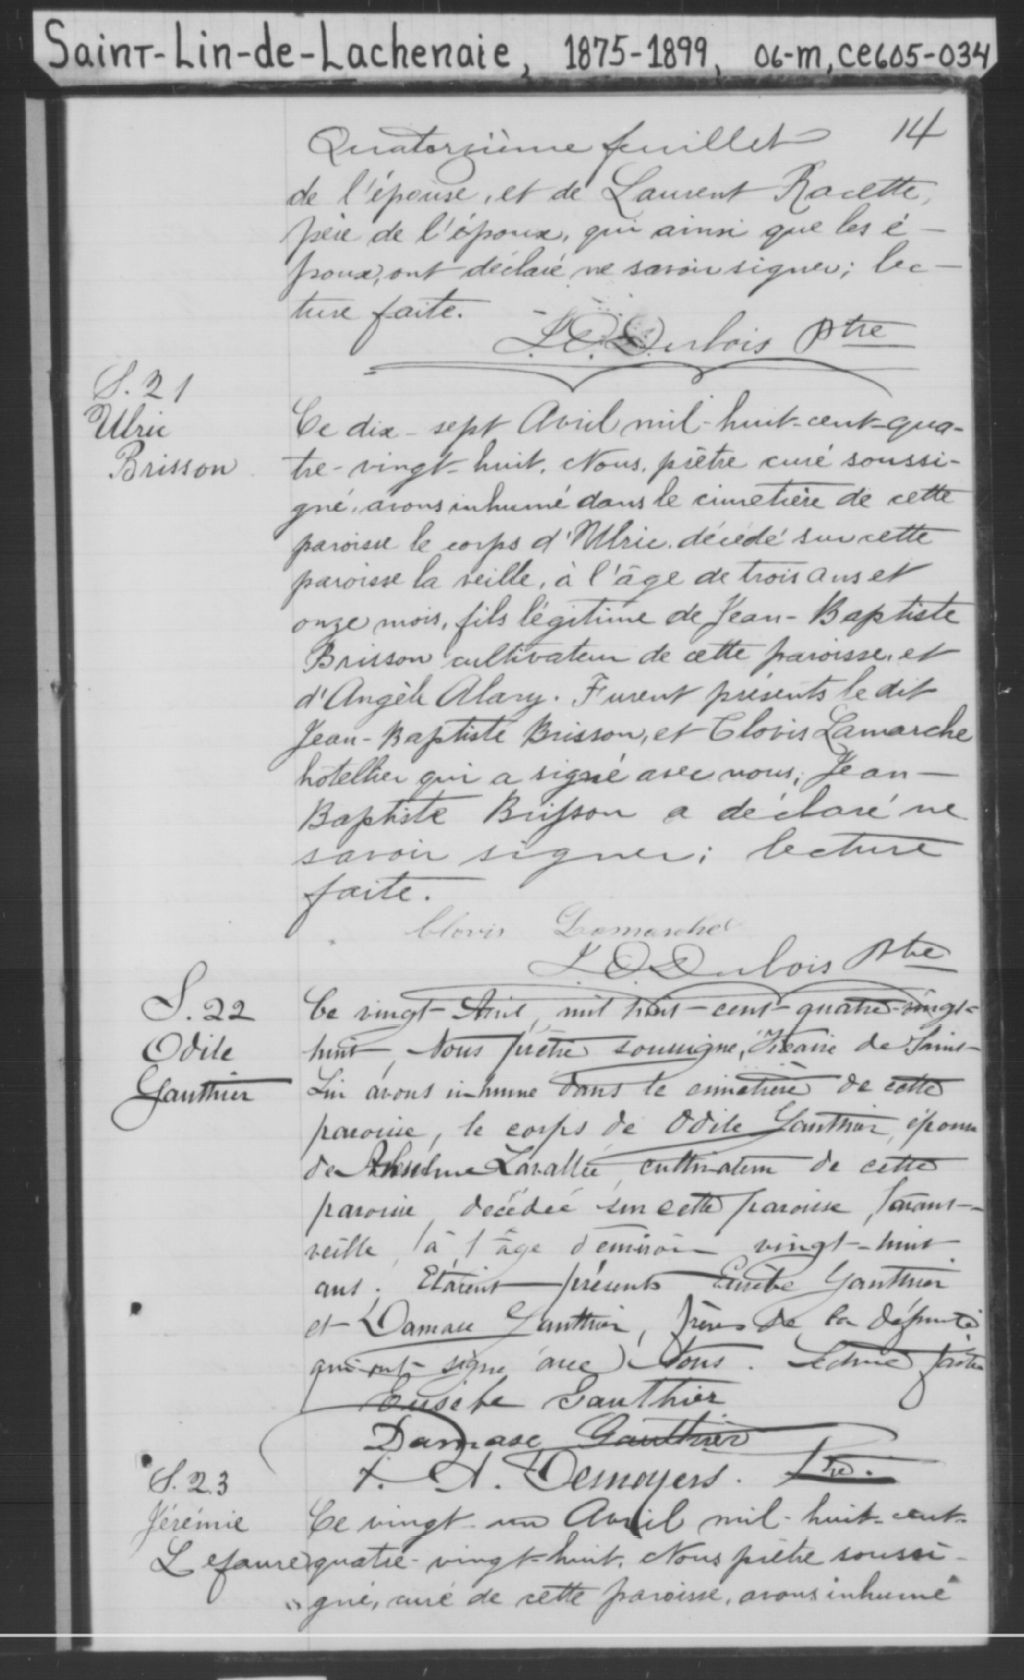 Saint-Lin-de-Lachenaie, 1875-1899, 06-m, CE605-034
14
Quatorzième feuillet
de l'épouse, et de Laurent Racette,
père de l'époux, qui ainsi que les é-
poux, ont déclaré ne savoir signer; lec-
ture faite.
Dubois Ptre
S. 21
Ulric
Brisson
Ce dix-sept Avril mil-huit-cent-qua-
tre-vingt-huit, Nous, prêtre curé soussi-
gné, avons inhumé dans le cimetière de cette
paroisse le corps d'Ulric, décédé sur cette
paroisse la veille, à l'âge de trois ans et
onze mois, fils légitime de Jean-Baptiste
Brisson cultivateur de cette paroisse, et
d'Angèle Alary. Furent présents le dit
Jean-Baptiste Brisson, et Clovis Lamarche
hotellier qui a signé avec nous; Jean-
Baptiste Brisson a déclaré ne
savoir signer; lecture
faite.
Clovis Lamarche
Dubois Ptre
S. 22
Odile
Gauthier
Ce vingt Avril, mil huit-cent-quatre-vingt-
huit, Nous prêtre soussigné, Vicaire de Saint-
Lin avons inhumé dans le cimetière de cette
paroisse, le corps de Odile Gauthier, épouse
de Anselme Lavallée, cultivateur de cette
paroisse, décédée sur cette paroisse, l'avant-
veille, à l'âge d'environ vingt-huit
ans. Etaient présents Eusèbe Gauthier
et Damase Gauthier, frères de la défunte
qui ont signé avec Nous. Lecture faite
Eusèbe Gauthier
Damase Gauthier
A. Desnoyers. Ptre.
S. 23
Jérémie
Lefaure
Ce vingt-un Avril mil-huit-cent-
quatre-vingt-huit, Nous prêtre soussi-
gné, curé de cette paroisse, avons inhumé